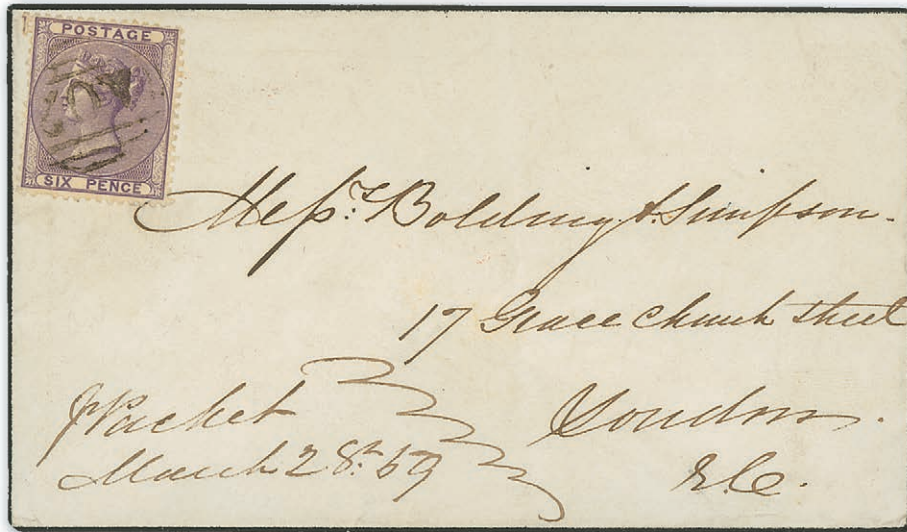 POSTAGE
SIX PENCE
Messrs. Bolding & Simpson.
17 Grace Church Street
London.
E.C.
p Packet
March 28th 59